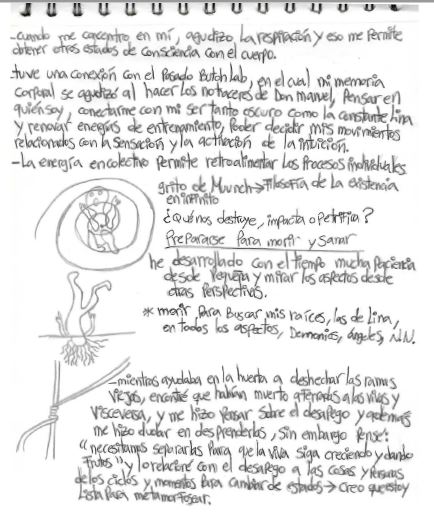 -cuando me concentro en mí, agudizo la respiración y eso me permite
obtener otros estados de consciencia con el cuerpo.
-tuve una conexión con el Pasado Butoh lab, en el cual mi memoria
corporal se agudizó al hacer los no haceres de Don Manuel, Pensar en
quien soy, conectarme con mi ser tanto oscuro como la constante lina
y renovar energías de entrenamiento, Poder decidir mis movimientos
relacionados con la sensación y la activación de la intuición.
-La energía en colectivo Permite retroalimentar los Procesos individuales
grito de Munch→Filosofía de la existencia
en infinito
¿Qué nos destruye, impacta o Petrifica?
Prepararse Para morir y Sanar
he desarrollado con el tiempo mucha Paciencia
desde Pequeña y mirar los aspectos desde
otras Perspectivas.
* morir, Para Buscar mis raíces, las de Lina,
en todos los aspectos, Demonios, ángeles, N.N.
-mientras ayudaba en la huerta a deshechar las ramas
viejas, encontré que habían muerto aferradas a las vivas y
visceversa, y me hizo Pensar sobre el desapego y además
me hizo dudar en desprenderlas, sin embargo Pensé:
"necesitamos separarlas Para que la viva siga creciendo y dando
frutos" y lo relacioné con el desapego a las cosas y Personas
de los ciclos y momentos Para cambiar de estados → Creo que estoy
Lista Para metamorfosear.